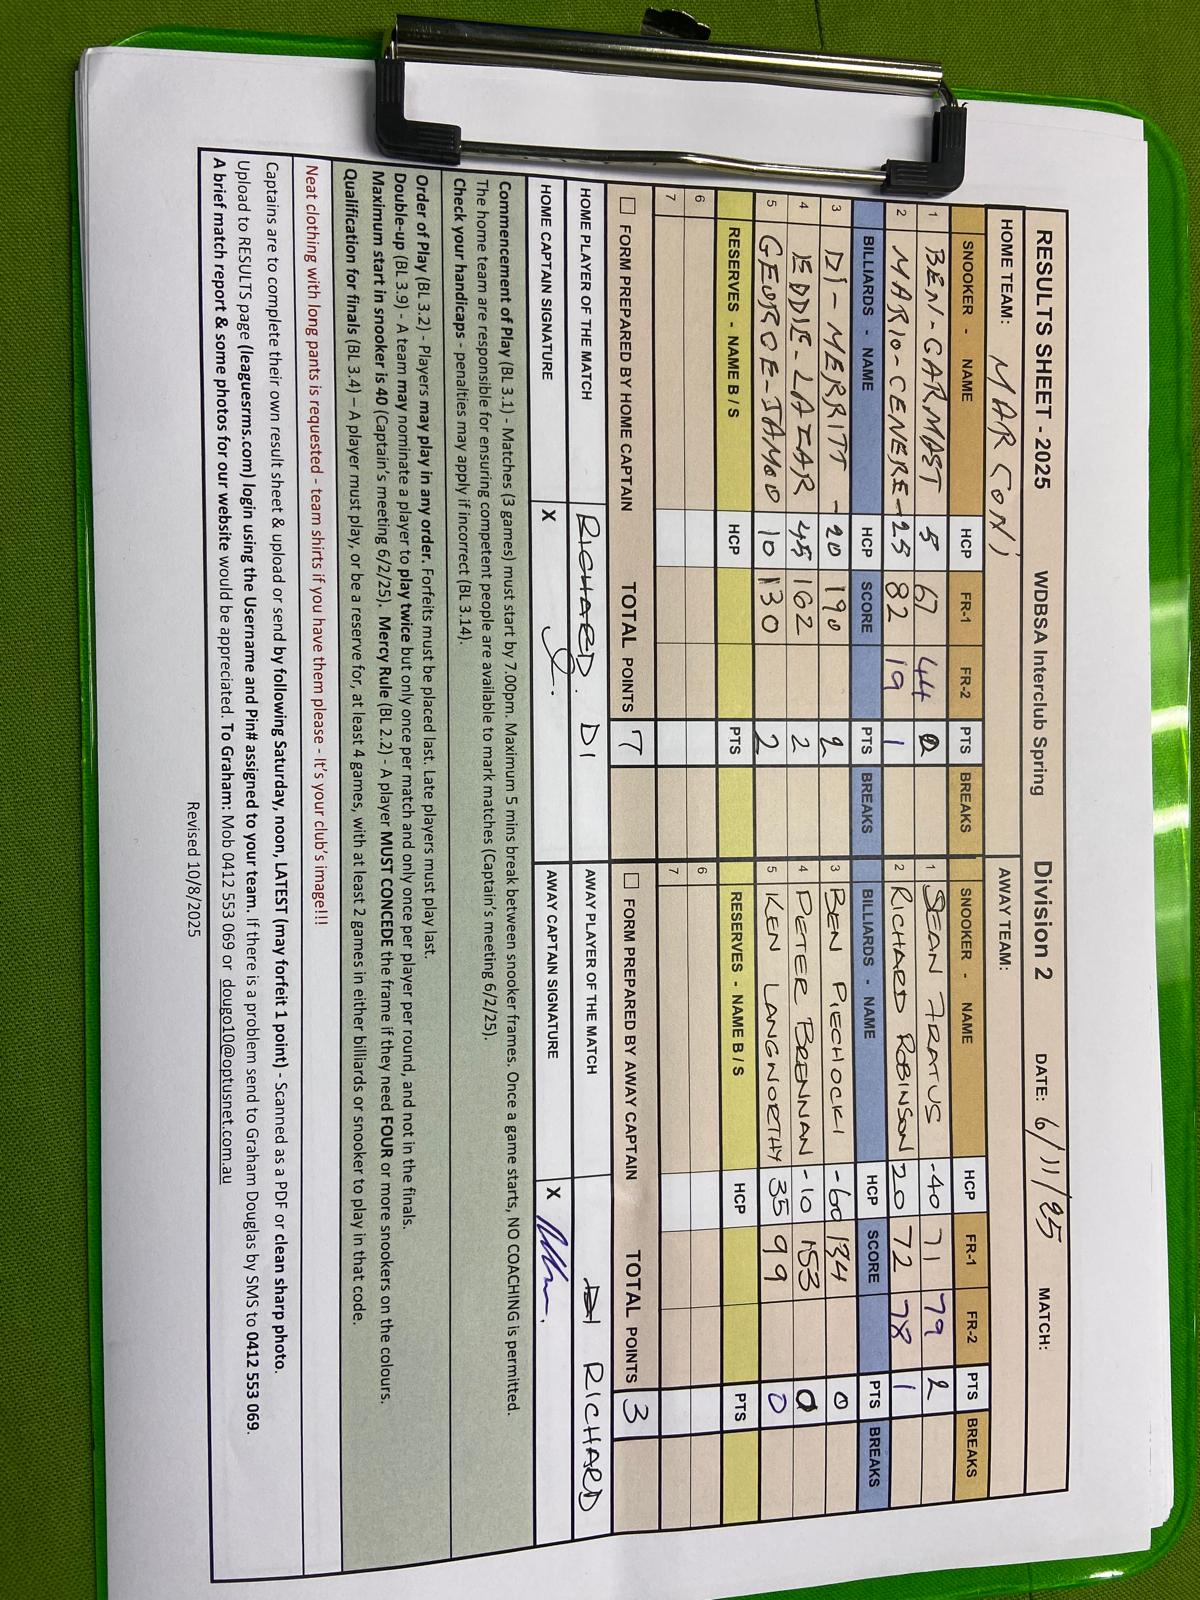 RESULTS SHEET - 2025 WDBSA Interclub Spring Division 2 DATE: 6/11/25 MATCH:
HOME TEAM: MAR CON) AWAY TEAM:
SNOOKER - NAME HCP FR-1 FR-2 PTS BREAKS SNOOKER - NAME HCP FR-1 FR-2 PTS BREAKS
1 BEN-GARMAST 5 67 44 0 1 SEAN FRATUS -40 71 79 2
2 MARIO-CENERE -25 82 19 1 2 RICHARD ROBINSON 20 72 78 1
BILLIARDS - NAME HCP SCORE PTS BREAKS BILLIARDS - NAME HCP SCORE PTS BREAKS
3 DI-MERRITT -20 190 2 3 BEN PIECHOCKI -60 134 0
4 EDDIE-LAZAR 45 162 2 4 PETER BRENNAN -10 153 0
5 GEORGE-JAMOO 10 130 2 5 KEN LANGWORTHY 35 99 0
RESERVES - NAME B / S HCP PTS RESERVES - NAME B / S HCP PTS
6 6
7 7
FORM PREPARED BY HOME CAPTAIN TOTAL POINTS 7 FORM PREPARED BY AWAY CAPTAIN TOTAL POINTS 3
HOME PLAYER OF THE MATCH RICHARD. DI AWAY PLAYER OF THE MATCH RICHARD
HOME CAPTAIN SIGNATURE X AWAY CAPTAIN SIGNATURE X
Commencement of Play (BL 3.1) - Matches (3 games) must start by 7.00pm. Maximum 5 mins break between snooker frames. Once a game starts, NO COACHING is permitted.
The home team are responsible for ensuring competent people are available to mark matches (Captain's meeting 6/2/25).
Check your handicaps - penalties may apply if incorrect (BL 3.14).
Order of Play (BL 3.2) - Players may play in any order. Forfeits must be placed last. Late players must play last.
Double-up (BL 3.9) - A team may nominate a player to play twice but only once per match and only once per player per round, and not in the finals.
Maximum start in snooker is 40 (Captain's meeting 6/2/25). Mercy Rule (BL 2.2) - A player MUST CONCEDE the frame if they need FOUR or more snookers on the colours.
Qualification for finals (BL 3.4) – A player must play, or be a reserve for, at least 4 games, with at least 2 games in either billiards or snooker to play in that code.
Neat clothing with long pants is requested - team shirts if you have them please - It's your club's image!!!
Captains are to complete their own result sheet & upload or send by following Saturday, noon, LATEST (may forfeit 1 point) - Scanned as a PDF or clean sharp photo.
Upload to RESULTS page (leaguesrms.com) login using the Username and Pin# assigned to your team. If there is a problem send to Graham Douglas by SMS to 0412 553 069.
A brief match report & some photos for our website would be appreciated. To Graham: Mob 0412 553 069 or dougo10@optusnet.com.au
Revised 10/8/2025